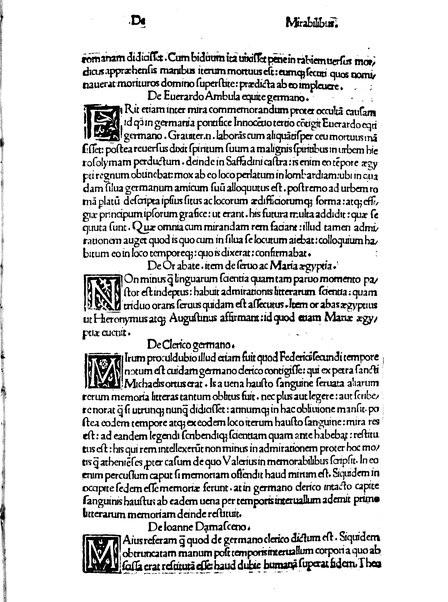 De Mirabilibus.
romanam didicisset. Cum biduum ita vixisset pene in rabiem versus mor⸗
dicus appræhensis manibus iterum mortuus est: eumq; secuti quos nomi⸗
nauerat morituros domino superstite: prædicta ab eo impleuere.
De Euerardo Ambula equite germano.
ERit etiam inter mira commemorandum propter occultā causam
id qđ in germania pontifice Innocētio tertio cōtigit Euerardo eqti
germano. Grauiter.n. laborās cum aliquātisper eū mortuum mā
sisset: postea reuersus dixit spiritum suum a malignis spiritibus in urbem hie
rosolymam perductum. deinde in Saffadini castra: is enim eo tēpore ægy
pti regnum obtinebat: mox ab eo loco perlatum in lombardiam: ubi in qua
dam silua germanum amicum suū alloquutus est. postremo ad urbem ro
mā platū descripta ipsius sitq ac locorum ædifficiorumq; forma: atq; effi⸗
giæ principum ipsorum grafice: ut erant. his futura multa addidit: quæ se
quuta sunt. Quæ omnia cum mirandam rem faciant: illud tamen admi
rationem auget quod is quo cum in silua se locutum aiebat: colloquium ha⸗
bitum eo in loco temporeq; quo is dixerat: confirmabat.
De Or abate. item de seruo ac Maria ægyptia.
NOn minus q̄ linguarum scientia quam tam paruo momento pa⸗
stor est indeptus: habuit admirationis litterarum scientia: quam
triduo orans seruus quidam est assecutus. Item or abas ægyptius
ut Hieronymus atq; Augustinus affirmant: id quod etiam Mariæ ægy⸗
ptiæ euenit.
De Clerico germano.
MIrum proculdubio illud etiam fuit quod Federici secundi tempore
notum est cuidam germano clerico contigisse: qui ex petra sancti
Michaelis ortus erat. Is a uena hausto sanguine seruata aliarum
rerum memoria litteras tantum oblitus fuit. nec plus aut legere: aut scribe
re norat q̄ si utrunq; nunq̄ didicisset: annumq; in hac obliuione mansit. po
stea eodem tempore atq; ex eodem loco iterum hausto sanguine: mira res
est: ad eandem legendi scribendiq; scientiam quam ante habebat: restitu
tus est: his qui rem intellexerūt non minus in admirationem propter hoc mo
tis q̄ athenieses ,ppter casum de quo Valerius in memorabilibus scripsit. In eo
enim percussum caput si memoriam offendit haud mirum est. Siquidem in
occipite sedem esse memoriæ ferunt. at in germano clerico intacto capite
sanguinis haustus ab eadem uena per temporis interuallum ademit primo
litterarum memoriam deinde restituit.
De Ioanne Damasceno.
MAius referam q̄ quod de germano clerico dictum est. Siquidem
obtruncatam manum post temporis interuallum corpori a quo ab
scissa erat restitutā esse haud dubie humanā superat fidem. Thea